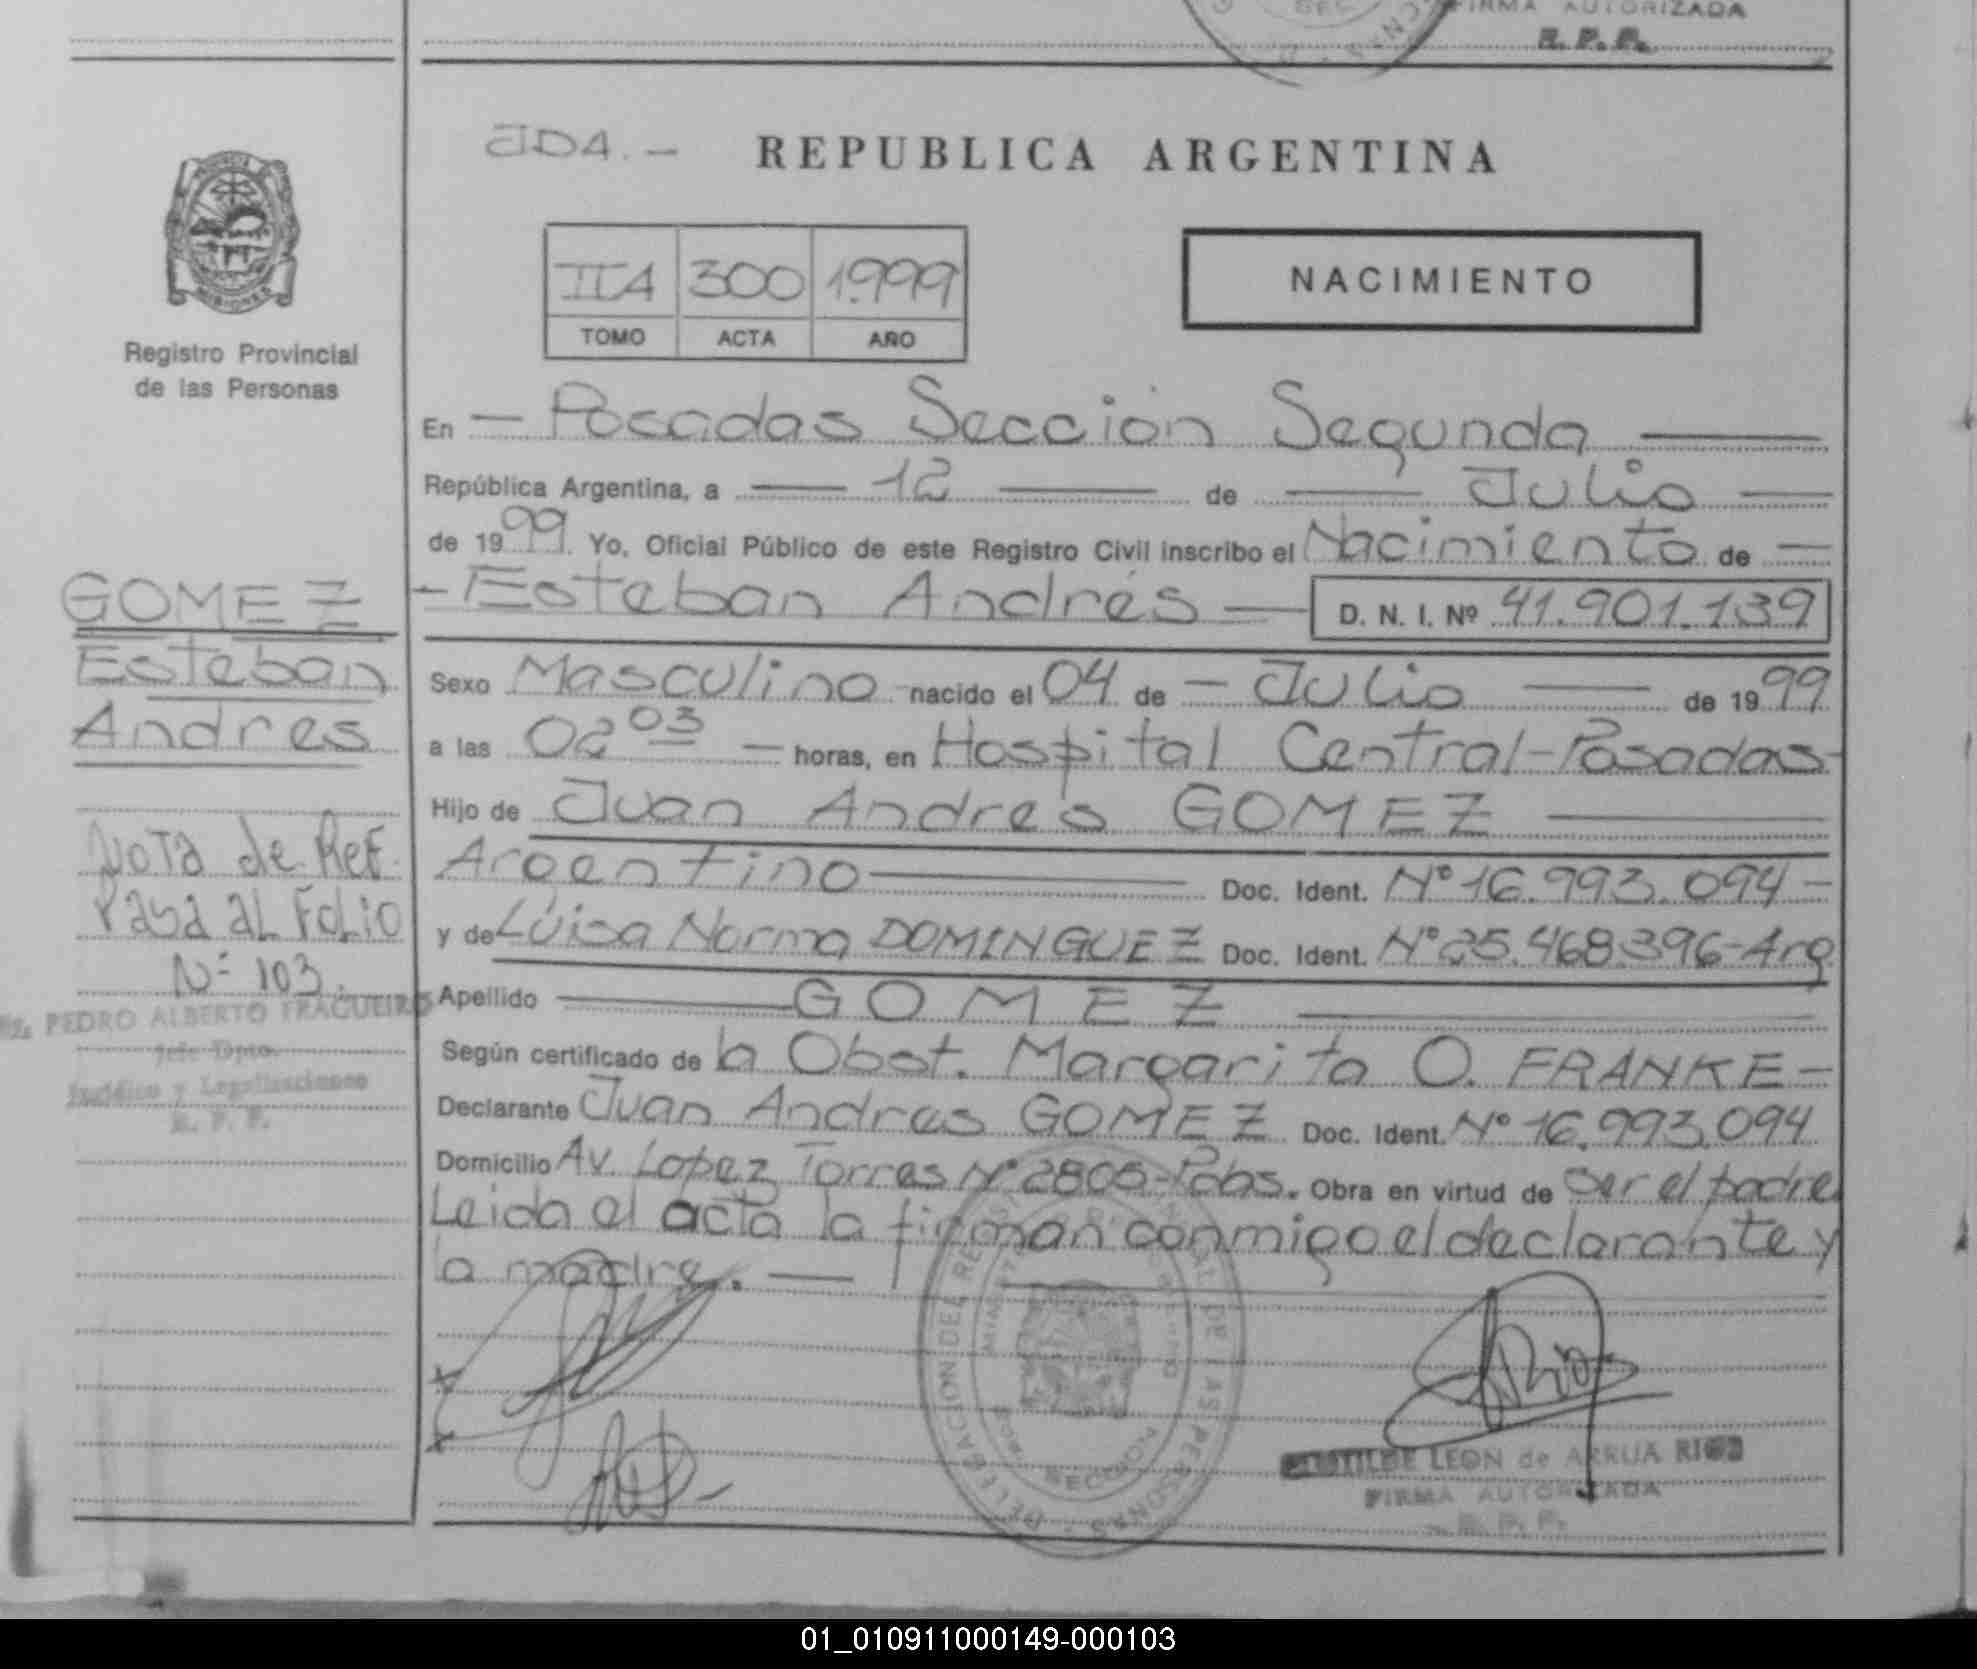 FIRMA AUTORIZADA
R. P. P.
JDA.-
REPUBLICA ARGENTINA
MISIONES
Registro Provincial
de las Personas
IIA 300 1.999
TOMO ACTA AÑO
NACIMIENTO
En - Posadas Sección Segunda
República Argentina, a 12 de Julio
de 1999. Yo, Oficial Público de este Registro Civil inscribo el Nacimiento de
- Esteban Andrés D. N. I. Nº 41.901.139
GOMEZ
Esteban
Andres
Sexo Masculino nacido el 04 de - Julio de 1999
a las 02 03 - horas, en Hospital Central - Posadas -
Hijo de Juan Andrés GOMEZ
Argentino Doc. Ident. Nº 16.993.094 -
y de Luisa Norma DOMINGUEZ Doc. Ident. Nº 25.468.396 - Arg
Apellido GOMEZ
Según certificado de la Obst. Margarita O. FRANKE -
Declarante Juan Andres GOMEZ Doc. Ident. Nº 16.993.094
Domicilio Av. Lopez Torres Nº 2805 - Pdas. Obra en virtud de ser el padre
Leida el acta la firman conmigo el declarante y
la madre.
NOTA de REF.
Pasa al FOLIO
Nº 103.
PEDRO ALBERTO FRAGUEIRO
Jefe Dpto.
Jurídico y Legalizaciones
R. P. P.
DELEGACION DEL REGISTRO PROVINCIAL DE LAS PERSONAS
LEON de ARRUA RIOS
FIRMA AUTORIZADA
R. P. P.
01_010911000149-000103